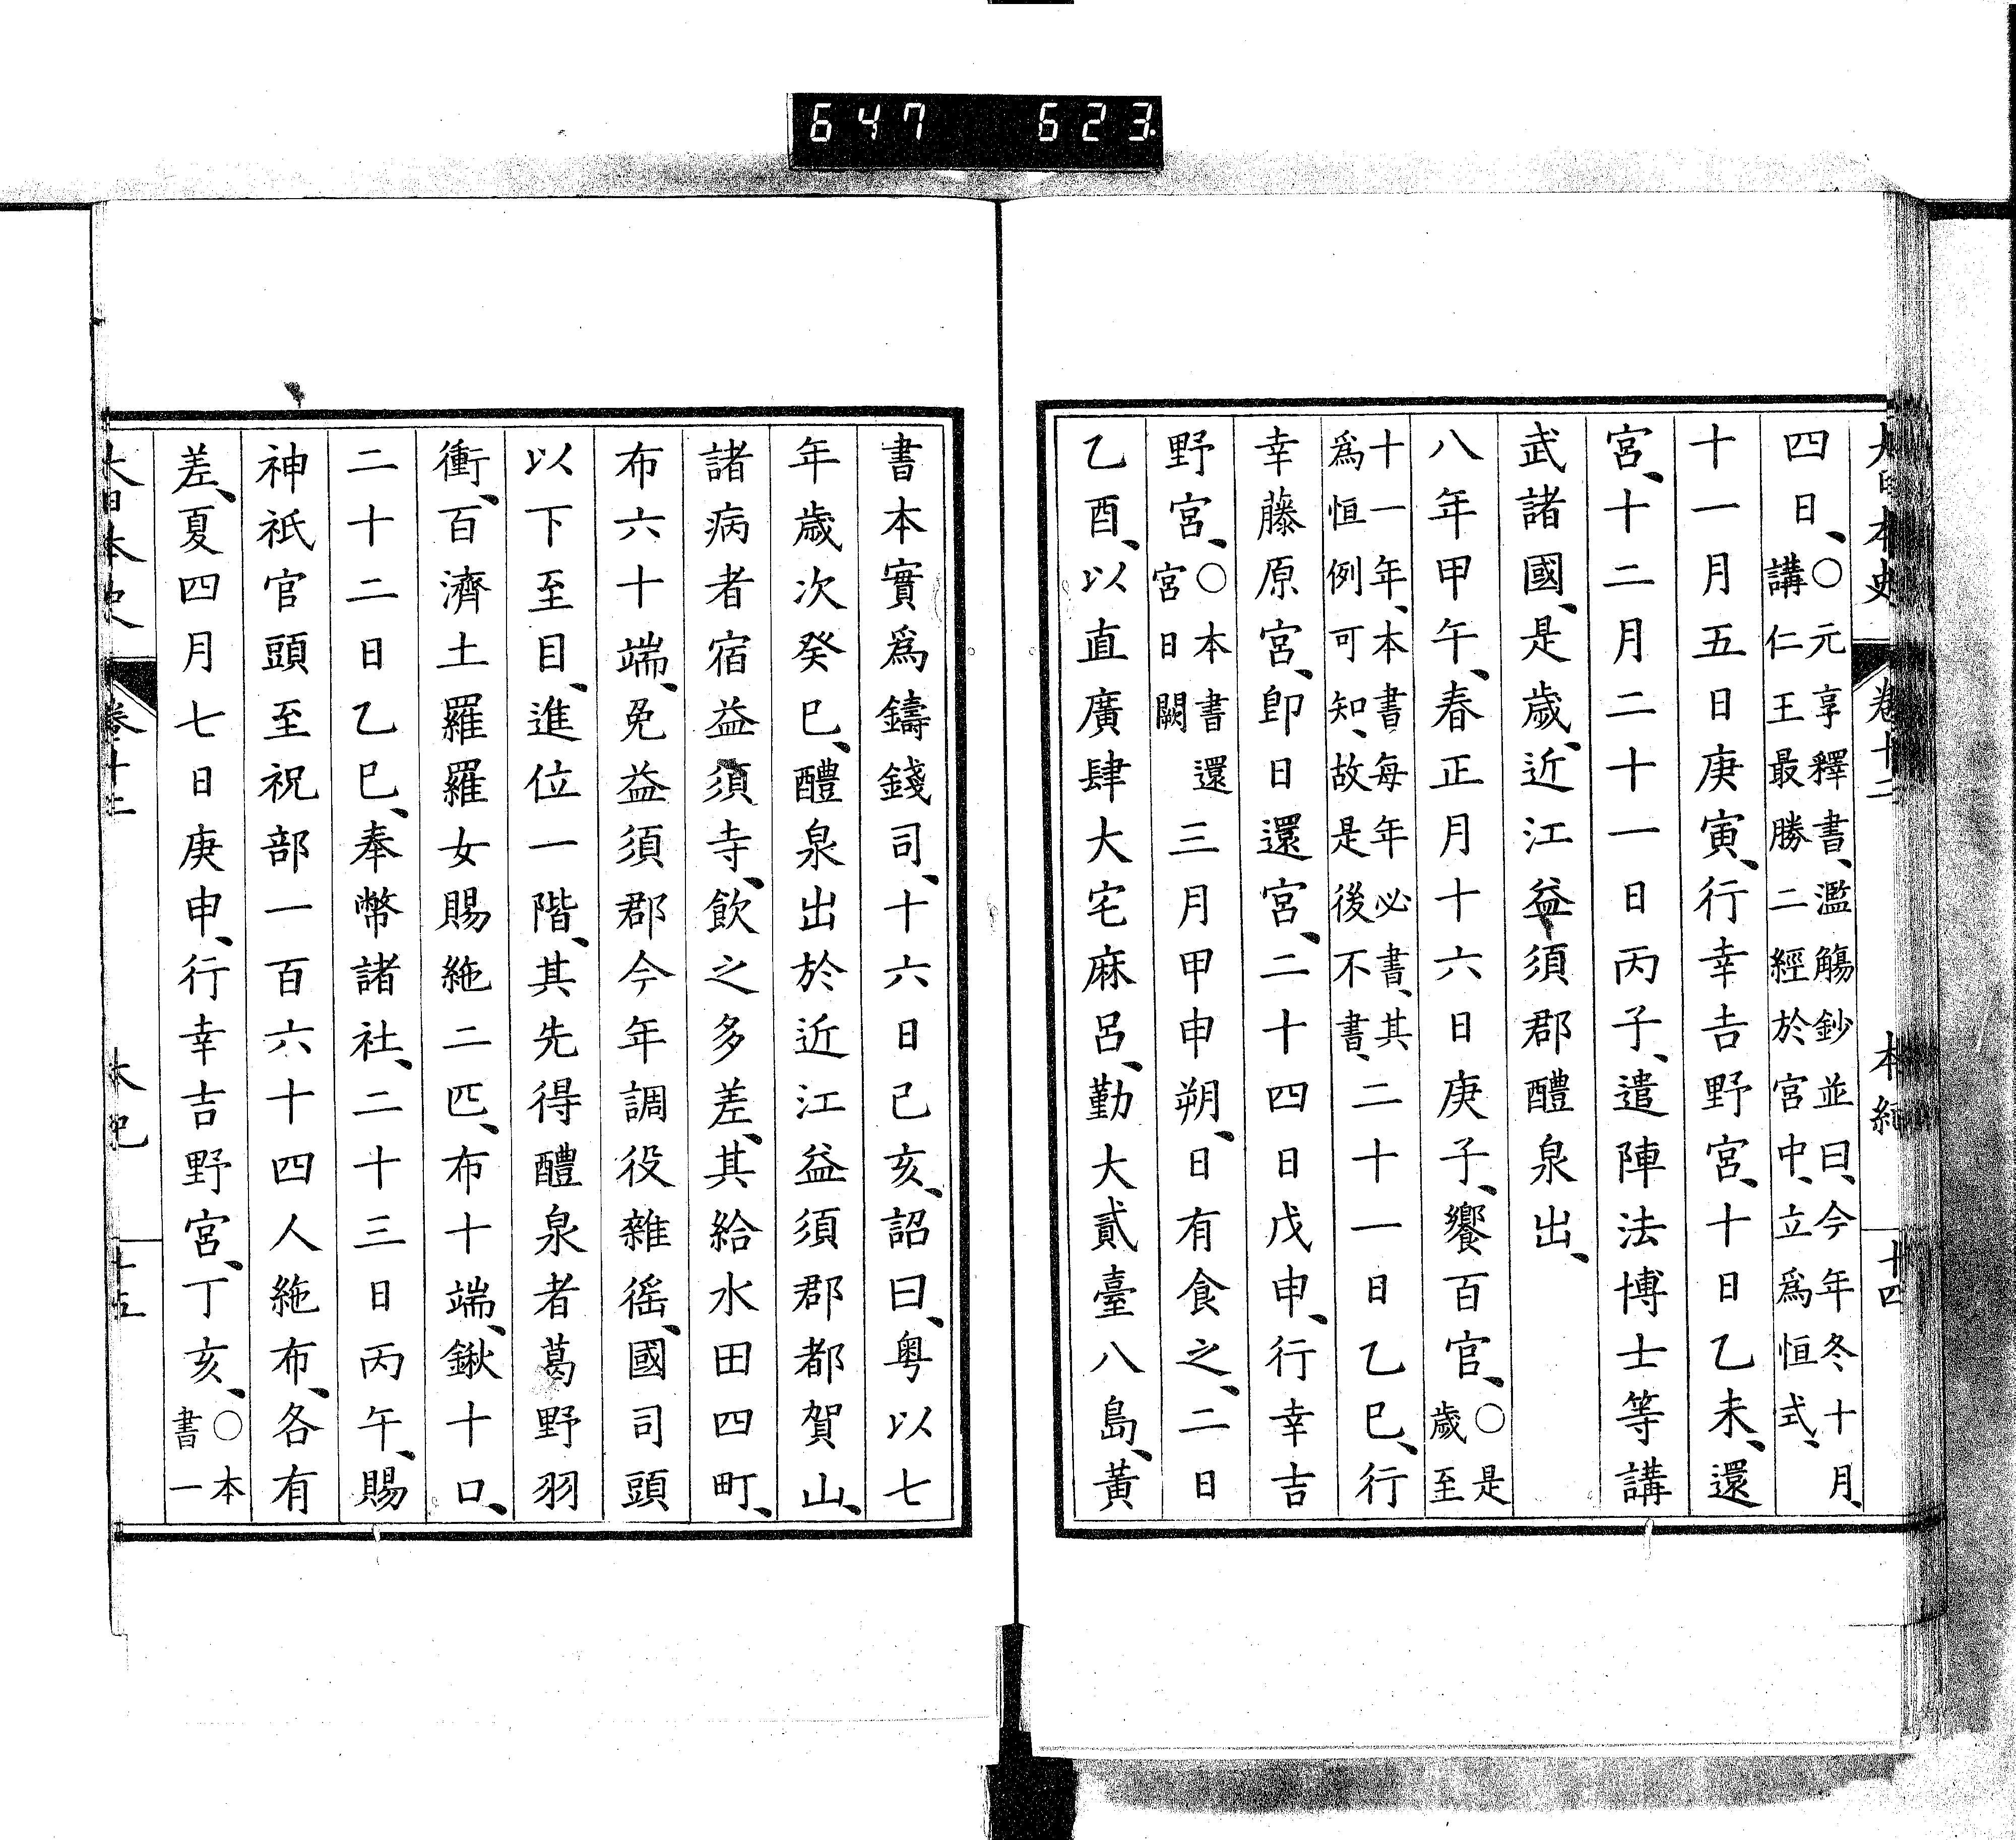 647 623
大日本史 卷十二 本紀 十四
四日、○元享釋書、濫觴鈔並曰、今年冬十月、講仁王最勝二經於宮中、立爲恒式、
十一月五日庚寅、行幸吉野宮、十日乙未、還
宮、十二月二十一日丙子、遣陣法博士等講
武諸國、是歲、近江益須郡醴泉出、
八年甲午、春正月十六日庚子、饗百官、○是歲至
十一年、本書每年必書、其爲恒例可知、故是後不書、二十一日乙巳、行
幸藤原宮、卽日還宮、二十四日戊申、行幸吉
野宮、○本書還宮日闕三月甲申朔、日有食之、二日
乙酉、以直廣肆大宅麻呂、勤大貳臺八島、黃
書本實爲鑄錢司、十六日己亥、詔曰、粤以七
年歲次癸巳、醴泉出於近江益須郡都賀山、
諸病者宿益須寺、飮之多差、其給水田四町、
布六十端、免益須郡今年調役雜徭、國司頭
以下至目、進位一階、其先得醴泉者葛野羽
衝、百濟土羅羅女賜絁二匹、布十端、鍬十口、
二十二日乙巳、奉幣諸社、二十三日丙午、賜
神祇官頭至祝部一百六十四人絁布、各有
差、夏四月七日庚申、行幸吉野宮、丁亥、○本書一
大日本史 卷十二 本紀 十五